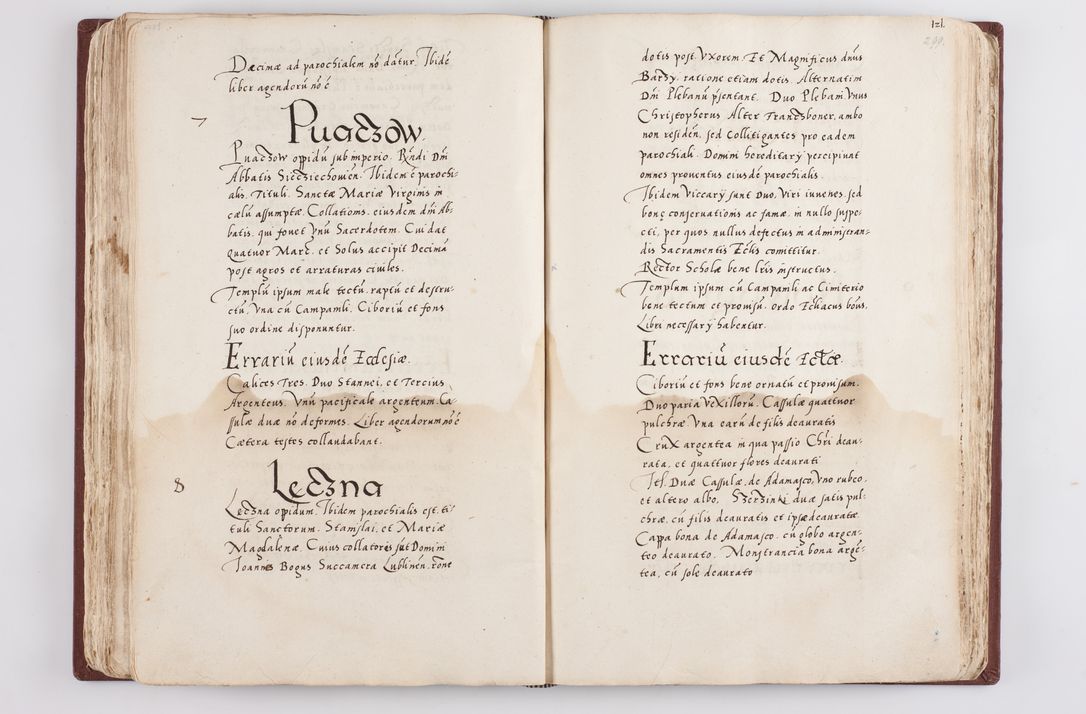 Decimæ ad parochialem nō dātur. Ibidē
liber agendorū nō ē
7
Puaczow.
Puaczow oppidū sub imperio. Rn̄di Dn̄i
Abbatis Siecziechowien. Ibidem ē parochi-
alis. Tituli. Sanctæ Mariæ Virginis in
cælū assumptæ. Collationis eiusdem dn̄i Ab-
batis, qui fouet vnū Sacerdotem. Cui dat
quatuor Marc. et Solus accipit Decimā
post agros et arraturas ciuiles.
Templū ipsum male tectū, raptū et destru-
ctū, Vna cū Campanli, Ciboriū et fons
suo ordine disponuntur.
Errariū eiusdē Ecclesiæ.
Calices Tres. Duo Stannei, et Tercius
Argenteus. Vnū pacificale argenteum. Ca-
sulæ duæ nō deformes. Liber agendorum nō ē
Cætera testes collaudabant.
8
Leczna
Leczna opidum. Ibidem parochialis est, ti-
tuli Sanctorum. Stanislai, et Mariæ
Magdalenæ. Cuius collatores sūt Domini
Joannes Bogus Succamera Lublinen. rōne
121.
290.
dotis post Vxorem. Et Magnificus dn̄us
Barzy, ratione etiam dotis. Alternatim
Dn̄i Plebanū pn̄sentant. Duo Plebani Vnus
Christopherus Alter Franczboner, ambo
non residen, sed Collitigantes pro eadem
parochiali. Domini hereditarÿ percipiunt
omnes prouentus eiusdē parochialis.
Ibidem ViccarÿSunt Duo, Viri iuuenes, sed
bonę conseruationis ac famæ, in nullo suspe-
cti, per quos nullus defectus in administran-
dis Sacramentis Ecclīs comittitur.
Rector Scholæ bene lr̄is instructus.
Templum ipsum cū Campanli ac Cimiterio
bene tectum et prouisū. ordo Ecl̄iacus bonus,
Libri necessarÿ habentur.
Errariū eiusdē Eccl̄æ.
Ciboriū et fons bene ornatū et prouisum.
Duo paria Vexillorū. Cassulæ quattuor
pulchræ. Vna earū de filis deauratis
Crux argentea in qua passio Chr̄i deau-
rata, et quattuor flores deaurati
It̄. Duæ Cassulæ, de Adamasco, Vno rubeo,
et altero albo. Szerzinki duæ satis pul-
chræ, cū filis deauratis et ipsæ deauratæ.
Cappa bona de Adamasco. cū globo argen-
teo deaurato. Monstrancia bona argē-
tea, cū sole deaurato